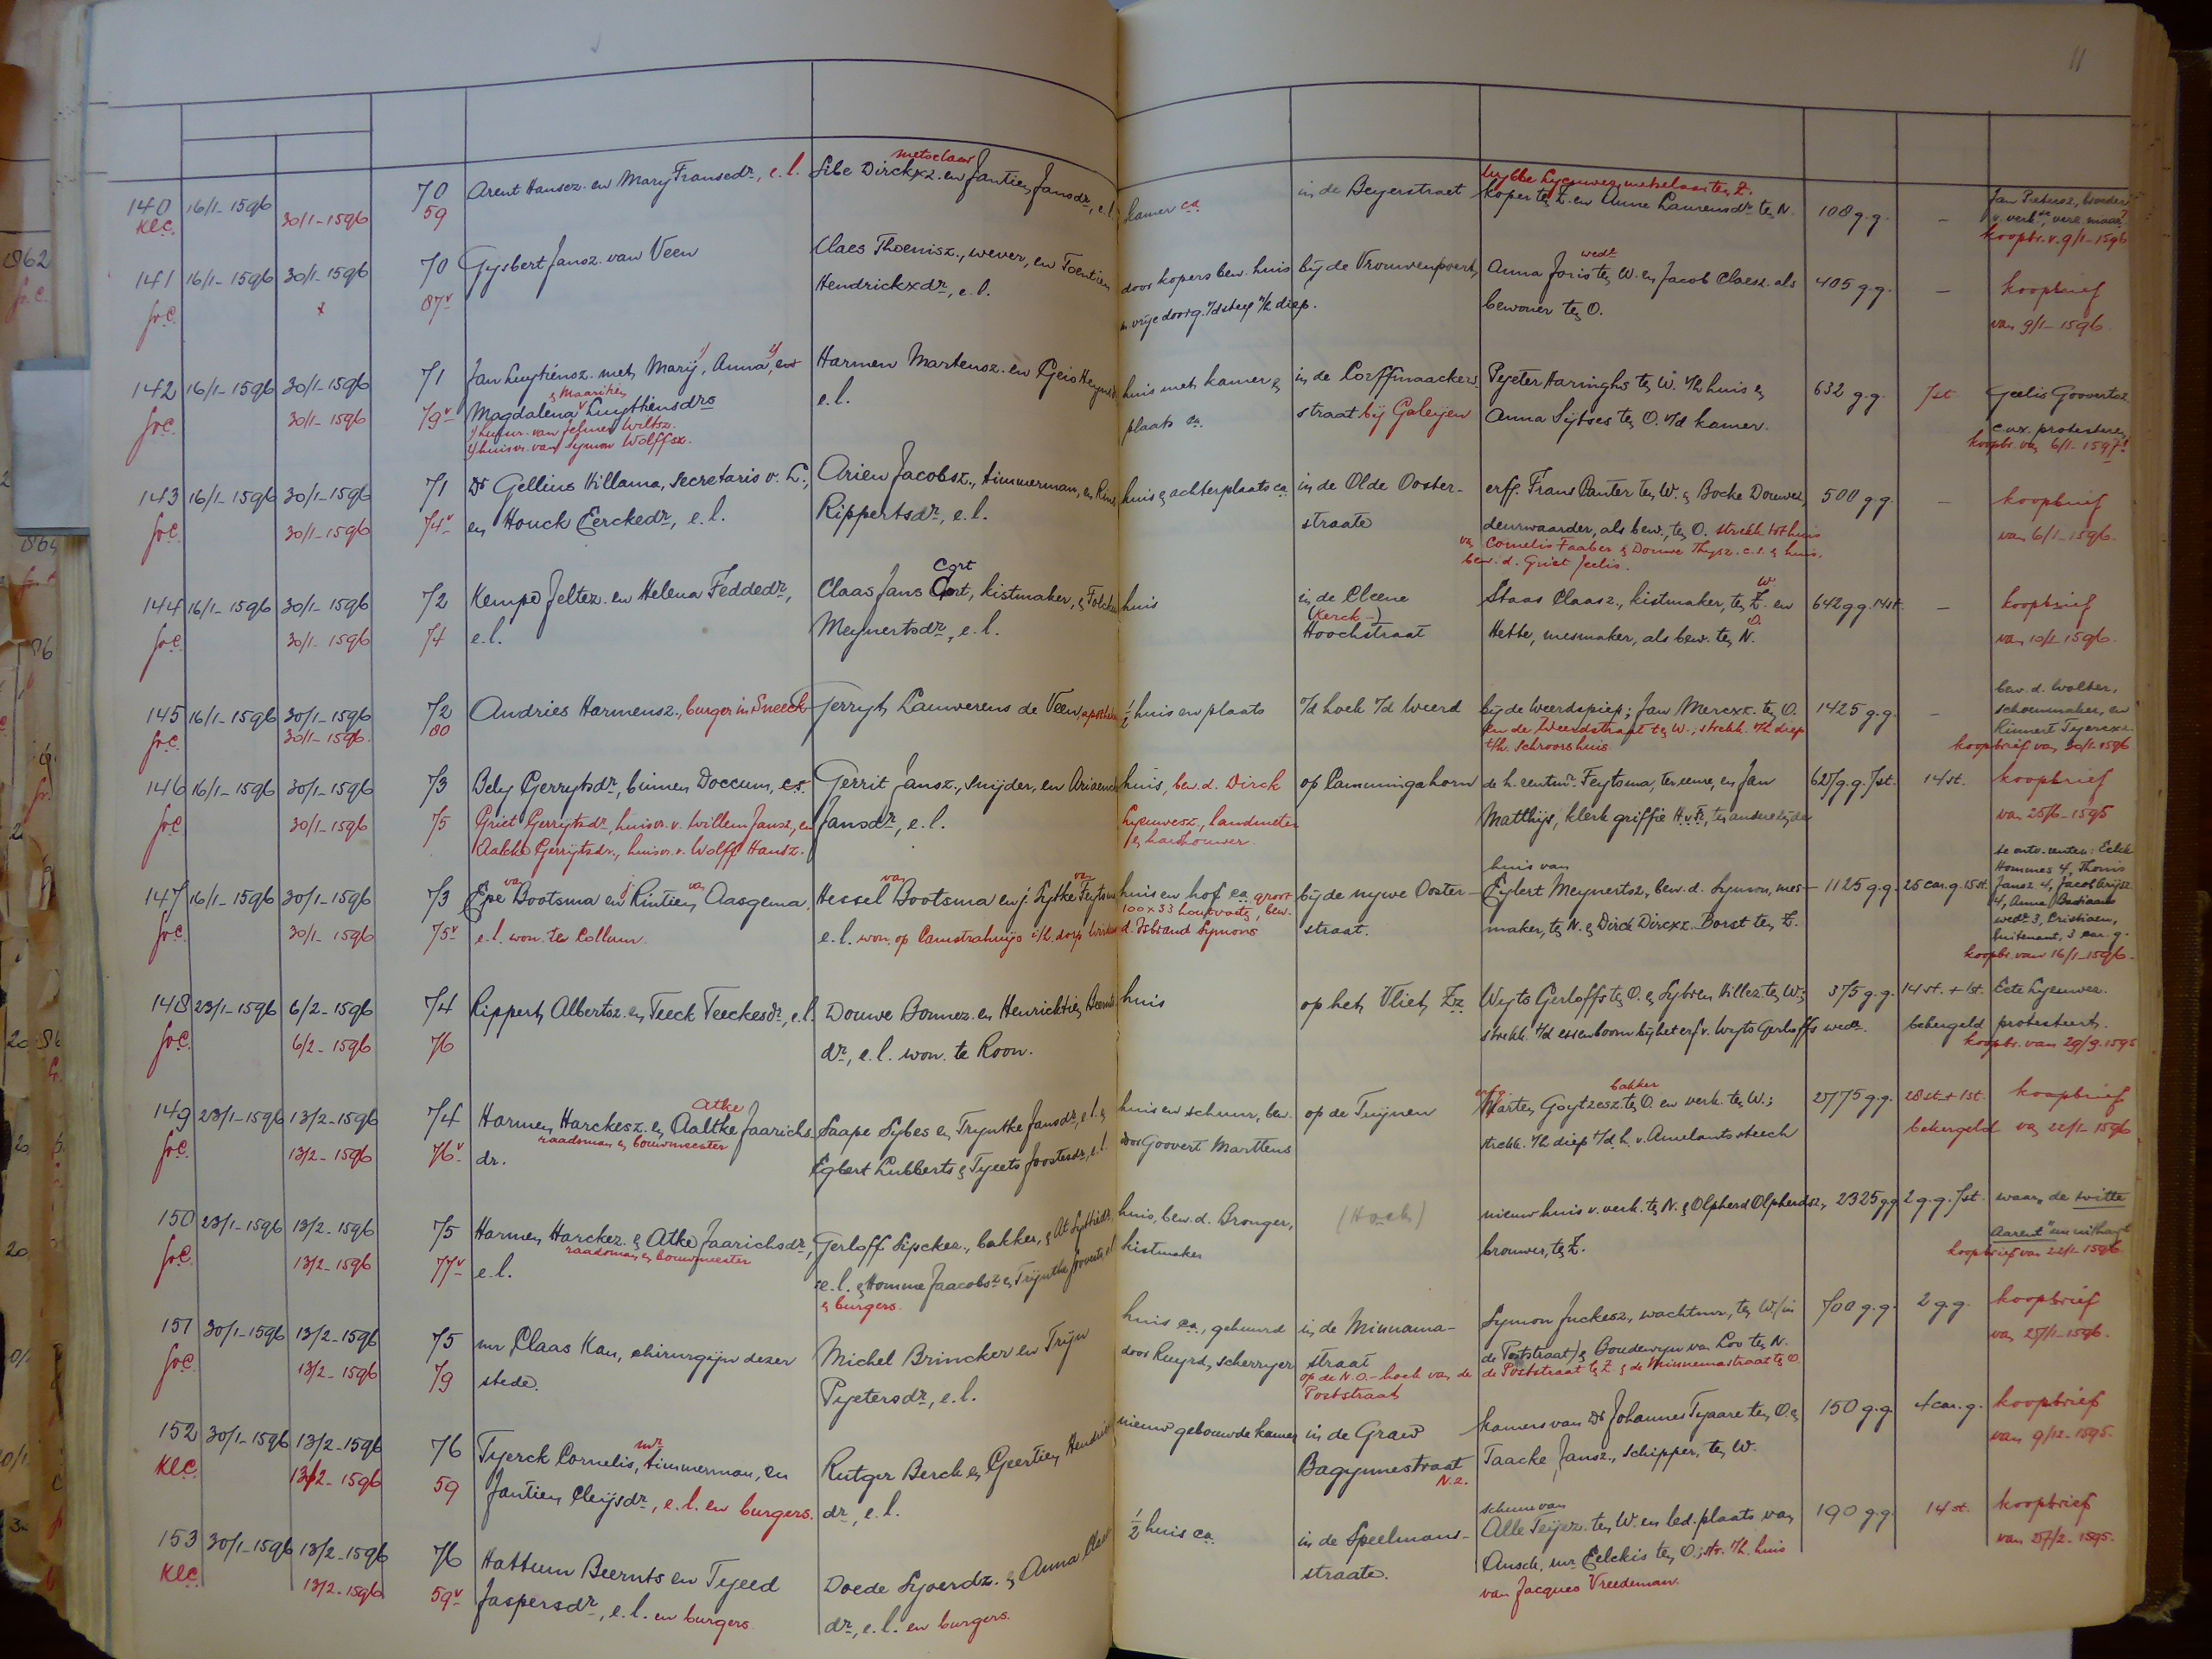 11
140 16/1-1596 70 Arent Hansz. en Mary Fransdr, e.l. Sibe Dirckxz. en Jantien Jansdr, e.l. kamer ca in de Beyerstraet koper ten Z. en Anne Laurensdr ten N. 108 g.g. –
metselaar
KlC. 30/1-1596 59 koopbr. v. 9/1-1596
141 16/1-1596 30/1-1596 70 Gysbert Jansz. van Veen Claes Thoenisz., wever, en Toentien door kopers bew. huis bij de Vrouwenpoort, Anna Joris ten W. en Jacob Claesz. als 405 g.g. – koopbrief
wedr
GrC. x 87v Hendrickxdr, e.l. bewoner ten O. van 9/1-1596
142 16/1-1596 30/1-1596 71 Jan Luytiensz. met Marij, Anna, en Harmen Martensz. en Geis huis met kamer en in de Corffmaackers Peyeter Haringhs ten W. v/h huis en 632 g.g. 7st Geelis Goovertsz
& Maariken
GrC. 30/1-1596 79v Magdalena Luytthiensdrs e.l. plaats ca. straat bij Galeyen Anna Sijtses ten O. v/d kamer. c.ux. protesteren
1) huisvr. van Jelmer Wiltsz.
2) huisvr. van Symon Wolffsz. koopbr. van 6/1-1597!
143 16/1-1596 30/1-1596 71 Dr Gellius Hillama, secretaris v. L., Arien Jacobsz., timmerman, en huis & achterplaats ca in de Olde Ooster- erff. Frans Panter ten W. & Bocke Douwes, 500 g.g. – koopbrief
GrC. 30/1-1596 74v en Houck Eerckedr, e.l. Rippertsdr, e.l. straate deurwaarder, als bew. ten O. strekk. tot huis van 6/1-1596.
van Cornelis Faaber & Douwe Thysz. c.s. & huis,
bew. d. Griet Jeelis.
144 16/1-1596 30/1-1596 72 Kempo Jeltez. en Helena Feddedr, Claas Jans Cort, kistmaker, & Folcken huis in de Cleene Staas Claasz., kistmaker, ten Z. en 642 g.g. 14st. – koopbrief
Cort W.
(Kerck-) O.
GrC. 30/1-1596 74 e.l. Meynertsdr, e.l. Hoochstraat Hette, mesmaker, als bew. ten N. van 10/1-1596.
145 16/1-1596 30/1-1596 72 Andries Harmensz., burger in Sneeck Gerryt Lauwerens de Veen, ½ huis en plaats o/d hoek v/d Weerd bij de Weerdspijp; Jan Mercxz. ten O. 1425 g.g. – bew. d. Wolter,
schoenmaker, en
GrC. 30/1-1596. 80 en de Weerdstraat ten W.; strekk. v/h diep
t/h. Schroorshuis. koopbrief van 30/1-1596
146 16/1-1596 30/1-1596 73 Bely Gerrytsdr, binnen Doccum, c.s. Gerrit Jansz., snijder, en Ariaencke huis, bew. d. Dirck op Camminga horn de h. rentmr. Feytsma, ter eenre, en Jan 627 g.g. 7st. 14st. koopbrief
GrC. 30/1-1596 75 Griet Gerrijtsdr, huisvr. v. Willem Jansz, en Jansdr, e.l. Lyeuwesz., landmeter Matthijs, klerk griffie H.v.F., ter andere zijde van 25/6-1595
Aalcke Gerrijtsdr., huisvr. v. Wolff Hansz. & huishouwer.
147 16/1-1596 30/1-1596 73 Epe van Bootsma en j. Rintien van Aasgema. Hessel van Bootsma en j. Sytke van Feytsma huis en hof ca. groot bij de nywe Ooster- huis van Eylert Meynertsz., bew. d. Symon, mes- 1125 g.g. 25 car.g. 15st.
te antw. renten: Eelck
Hommes 4, Thonis
Jansz 4, Jacob
4, Anna Bastiaans
GrC. 30/1-1596 75v e.l. won. te Collum. e.l. won. op Camstrahuijs i/h. dorp 100 x 33 houtvoeten, bew. d. IJsbrand Symons straat. maker, ten N. & Dirck Dircxz. Borst ten Z.
wedr 3, Cristiaen,
luitenant, 3 car.g.
koopbr. van 16/1-1596.
148 23/1-1596 6/2-1596 74 Rippert Albertsz. en Teeck Teeckesdr, e.l. Douwe Bonnez. en Henricktien Beernts huis op het Vliet Zz Wyts Gerloffs ten O. & Sybren Hillez. ten W.; 375 g.g. 14st. + 1st. Eete Lyeuwez.
GrC. 6/2-1596 76 dr, e.l. won. te Roon. strekk. v/d essenboom bij het erf v. Wyts Gerloffs wedr. bekergeld protesteert.
koopbr. van 29/9-1595
149 23/1-1596 13/2-1596 74 Harmen Harckesz. en Aaltke Jaarichs Saape Sybes en Tryntke Jansdr, e.l. & huis en schuur, bew. op de Tuijnen Marten Goytzesz. ten O. en verk. ten W.; 2775 g.g. 28st + 1st. koopbrief
Atke bakker
raadsman & bouwmeester
GrC. 13/2-1596 76v dr. Egbert Lubberts & Tyeets Joostesdr, e.l. door Goovert Marttens strekk. v/h diep t/d h. v. Amelants steech bekergeld van 22/1-1596
150 23/1-1596 13/2-1596 75 Harmen Harckez. & Atke Jaarichsdr, Gerloff Sipckez., bakker, & huis, bew. d. Bronger, (Hoek) nieuw huis v. verk. ten N. & Olpherd Olpherdsz, 2325 gg 2 g.g. 7st. waar „de witte
raadsman & bouwmeester
GrC. 13/2-1596 77v e.l. e.l. & Homme Jaacobsz & kistmaker brouwer, ten Z. Aarent" uithangt
& burgers. koopbrief van 22/1-1596
151 30/1-1596 13/2-1596 75 mr Claas Kan, chirurgijn dezer Michel Brincker en Trijn huis ca., gehuurd in de Minnama- Symon Juckesz., wachtmr, ten W. (in 700 g.g. 2 g.g. koopbrief
GrC. 13/2-1596 79 stede. Pyetersdr, e.l. door Ruyrd, scherryer straat de Poststraat) & Boudewyn van Loo ten N. van 27/1-1596.
op de N.O.-hoek van de Poststraat de Poststraat ten Z & de Minnemastraat ten O.
152 30/1-1596 13/2-1596 76 Tyerck Cornelis, mr timmerman, en Rutger Berck en Geertien nieuw gebouwde kamer in de Graw kamers van Dr Johannes Tyaare ten O. & 150 g.g. 4 car.g. koopbrief
KlC. 13/2-1596 59 Jantien Cleijsdr, e.l. en burgers. dr, e.l. Bagynnestraat Taacke Jansz., schipper, ten W. van 9/12-1595.
N.z.
153 30/1-1596 13/2-1596 76 Hattum Beernts en Tyeed Doede Sjoerdz. & Anna ½ huis ca. in de Speelmans- schuur van Alle Teijez. ten W. en led. plaats van 190 g.g. 14st. koopbrief
KlC. 13/2-1596 59v Jaspersdr, e.l. en burgers. dr, e.l. en burgers. straate. Ansck, mr Eelckis ten O.; str. t/h. huis van 27/2-1595.
van Jacques Vreedeman.